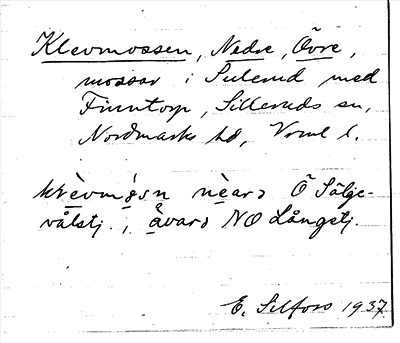 Klevmossen, Nedre, Övre,
mossar i Sulerud med
Finntorp, Silleruds sn,
Nordmarks hd, Vrml l.
nèarə Ö Sälje-
vålstj., åvarə NO Långstj.
E. Selfors 1937